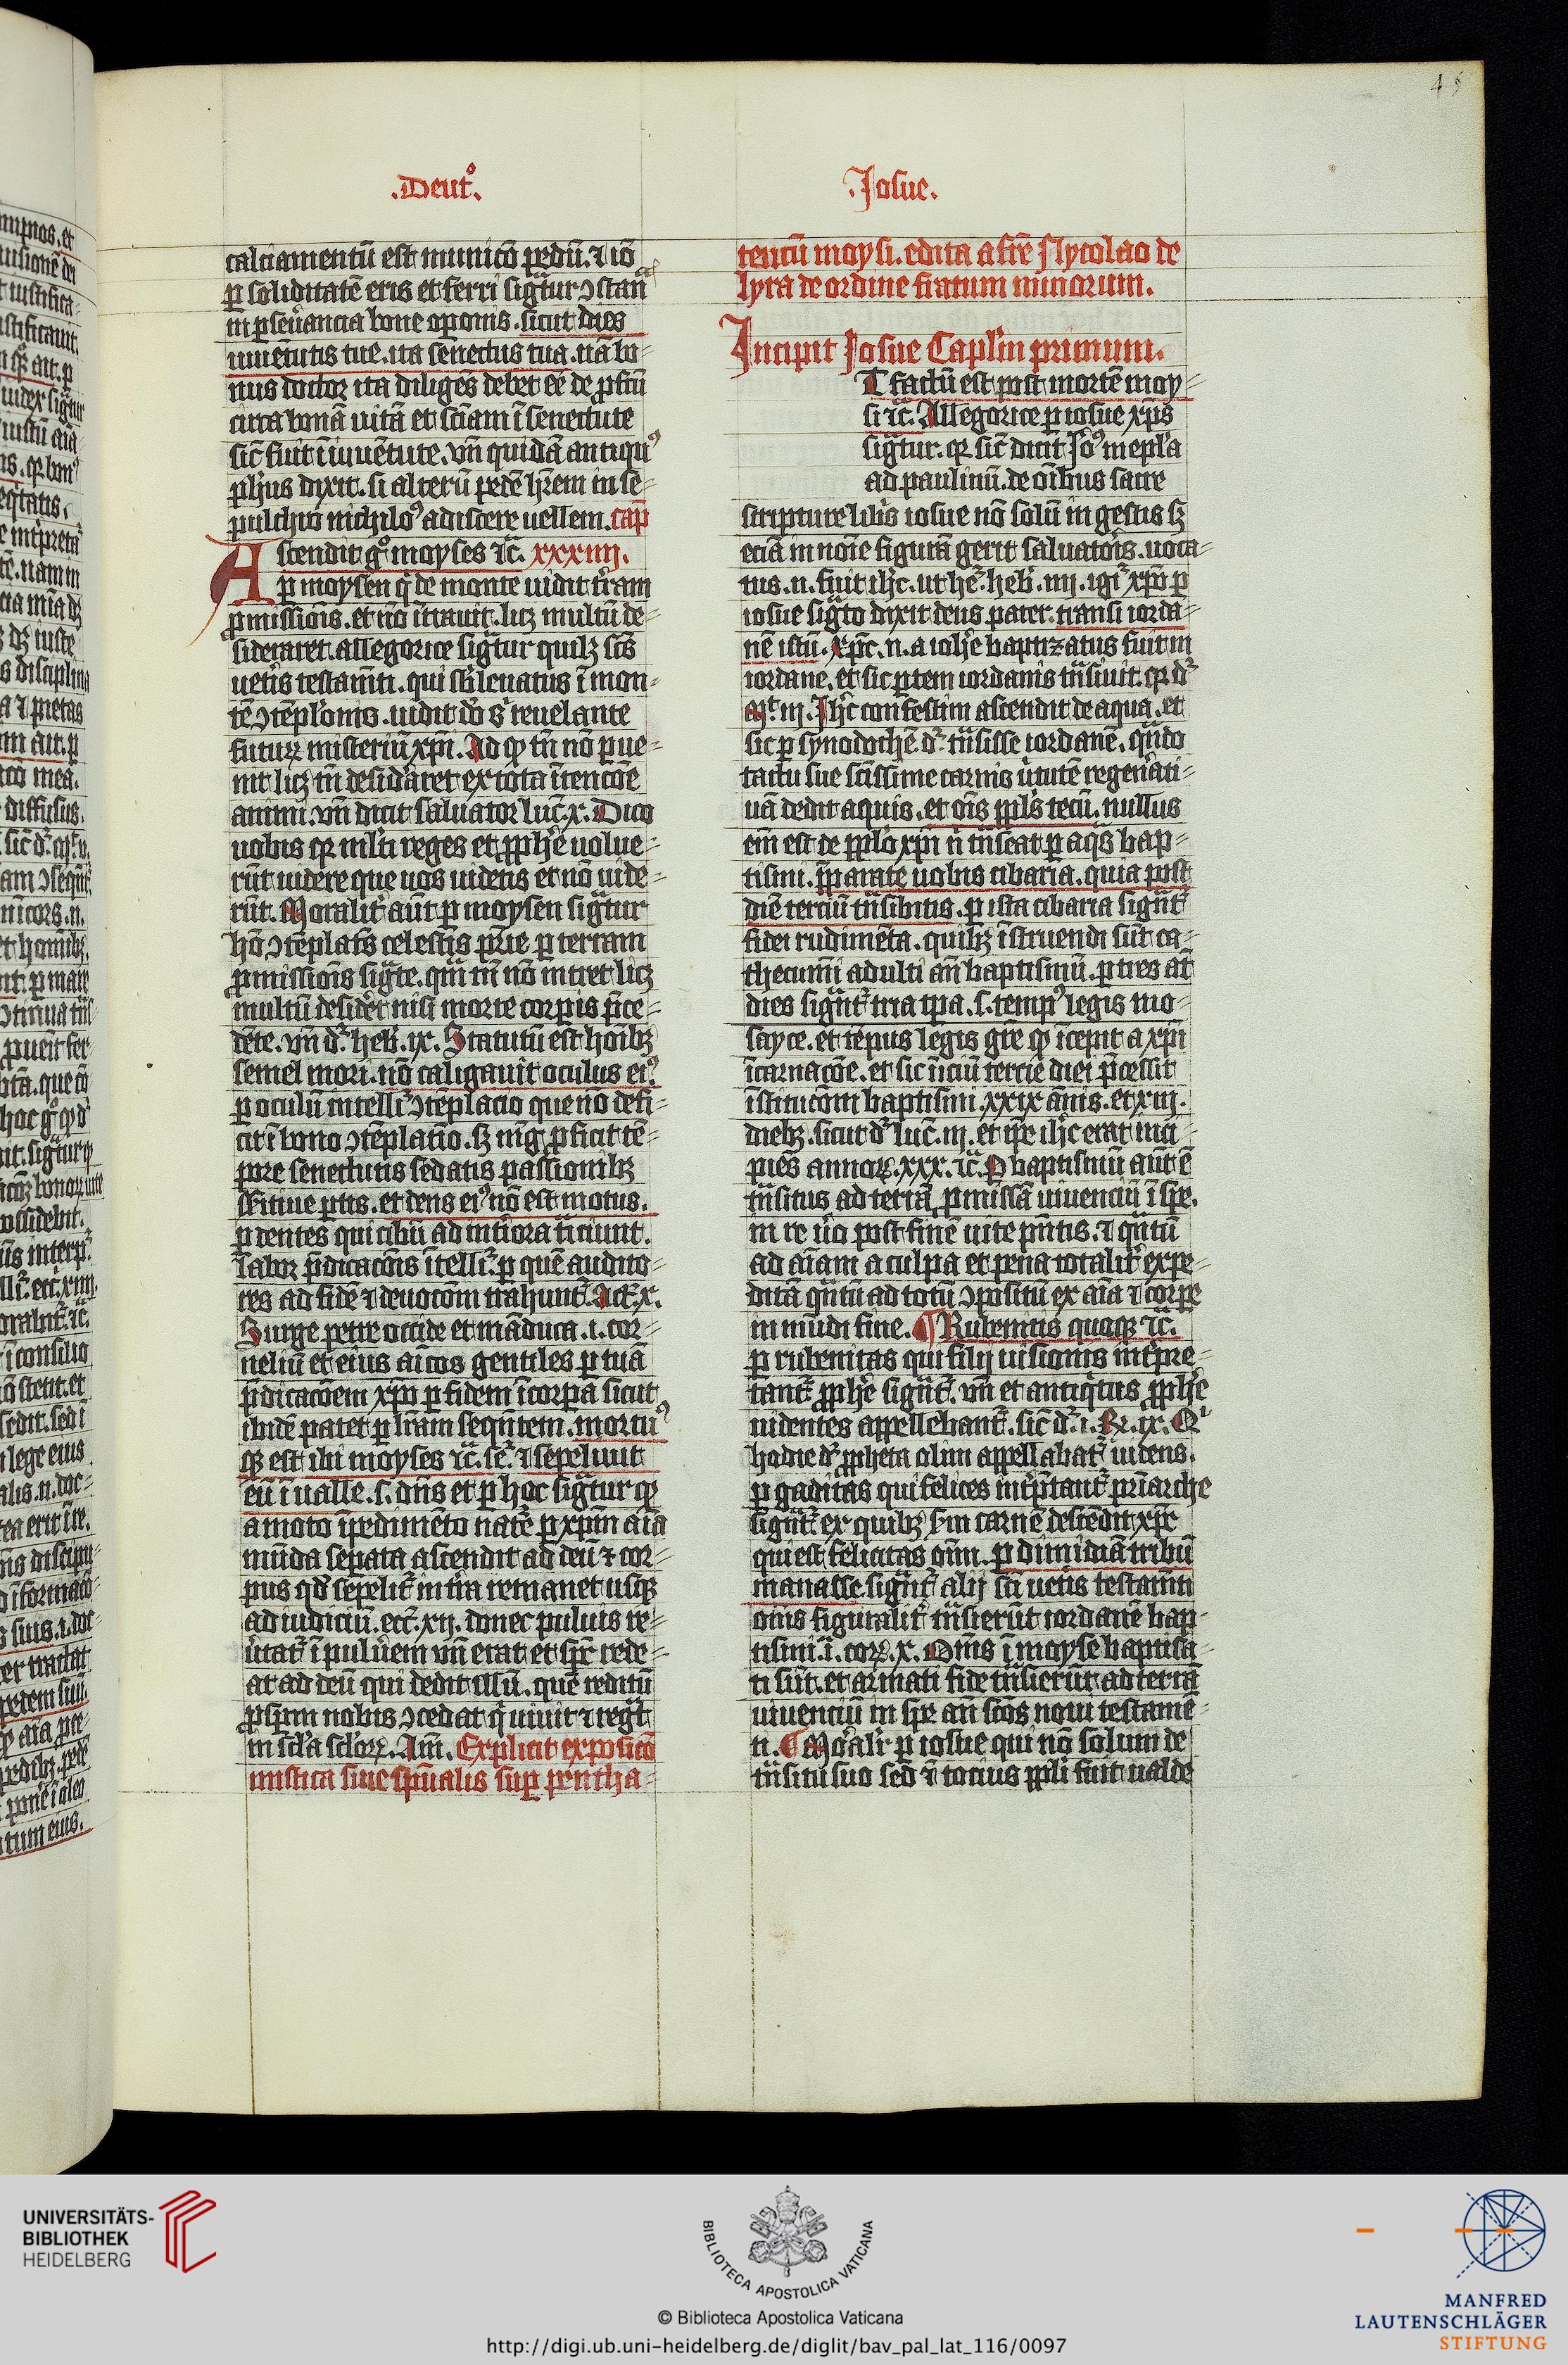 45
.Deut°.
calciamentū est municō pedū. ⁊ iō
ꝑ soliditatē eris et ferri sigͣtur ↄstan
in ꝑseuͣancia bone oꝑonis. sicut dies
iuuētutis tue. ita senectus tua. nā bo-
nus doctor ita diligēs debet eē de ꝓfcū
circa bonā uitā et sciam ī senectute
sic̄ fuit ī iuuētute. vn̄ quidā antiquꝰ
ph̄us dixit. si alterū pedē hr̄em in se-
pulchro nichiloꝰ adiscere uellem. cap̄
Ascendit gͦ moyses ⁊c̄. xxxiiij.
ꝑ moysen q̄ de monte uidit tr̄am
ꝓmissiōis. et nō ītrauit. lꝫ multū de-
sideraret. allegorice sigͣtur quilꝫ sc̄s
uetīs testam̄ti. qui sb̄leuatus ī mon-
tē ↄtēplōnis. uidit dō sͥ reuelante
futurꝝ misteriū xp̄i. Ad qͦ tn̄ nō ꝑue-
nit lꝫ tn̄ desidͣaret ex tota ītencōe
animi. vn̄ dicit saluator luc̄. x. Dico
uobis qꝫ mlti reges et ꝓph̄e uolue-
rūt uidere que uos uidetis et nō uide-
rūt. Moralitͣ aūt ꝑ moysen sigͣtur
hō ↄtēplatīs celestis pr̄ie ꝑ terram
ꝓmissiōis sigͣte. qͣm tn̄ nō intret lꝫ
multū desidēt nisi morte corꝑis p̄ce-
dēte. vn̄ dͬ heb̄. ix. Statutū est hoībꝫ
semel mori. nō caligauit oculus eiꝰ.
ꝑ oculū intelliͬ ↄtēplacio que nō defi-
cit ī bono ↄtēplatīo. sꝫ mͣg ꝓficit tē-
pore senectutis sedatis passionibꝫ
sēsitiue ꝑtis. et dens eiꝰ nō est motus.
ꝑ dentes qui cibū ad intͥora traiciunt.
labor p̄dicacōis ītelliͬ. ꝑ quē audito-
res ad fidē ⁊ deuocōm trahuntͬ. Act̄. x.
Surge petre occide et māduca. .i. cor-
neliū et eius amīcos gentiles ꝑ tuā
p̄dicacōem xp̄o ꝑ fidem īcorꝑa sicut
ibidē patet ꝑ lr̄am sequn̄tem. mortuꝰ
qꝫ est ibi moyses ⁊c̄. seͬ. ⁊ sepeliuit
eū ī ualle. s. dn̄s et ꝑ hoc sigͣtur qͦ
amoto īpedimēto natē ꝑ xp̄m aīa
mūda seꝑata ascendit ad deū ⁊ cor-
pus qd̄ sepelitͬ in tr̄a remanet usqꝫ
ad iudiciū. ecc̄. xij. donec puluis re-
ūtatͬ ī puluēem vn̄ erat et sp̄c rede-
at ad deū qui dedit illū. quē reditū
ꝓsp̄um nobis ↄcedat q̄ uiuit ⁊ regͣt
in scl̄a sclōꝝ. Am̄. Explicit exposicō
mistica siue sp̄ualis suꝑ pentha-
.Iosue.
teucū moysi. edita a fr̄e Nycolao de
lyra de ordine fratum minorum.
Incipit Iosue Caplm̄ primum.
T factū est post mortē moy-
si ⁊c̄. Allegorice ꝑ iosue xp̄s
sigͣtur. qꝫ sic̄ dicit Ieroꝰ in epl̄a
ad paulinū. de oībus sacre
scripture libīs iosue nō solū in gestis sꝫ
eciā in noīe figurā gerit saluatoīs. uoca-
tus. n. fuit ih̄c. ut heͬ. heb̄. iiij. igiͬ xp̄o ꝑ
iosue sigͣto dixit deus pater. transi iorda-
nē istū. Xp̄c. n. a ioh̄e baptizatus fuit in
iordane. et sic ꝑtem iordanis tͣnsiuit. qꝫ dͬ
Mͭ. iij. Ih̄c confestim ascendit de aqua. et
sic ꝑ synodochē dͬ. tͣnsisse iordanē. qn̄do
tactu sue sc̄issime carnis ūtutē regenerati-
uā dedit aquis. et oīs ꝓpl̄s tecū. nullus
em̄ est de ꝓplō xp̄i n̄ tͣnseat ꝑ aqͣs bap-
tismi. p̄parate uobis cibaria. quia post
diē terciū tͣnsibitis. ꝑ ista cibaria sign̄tͬ
fidei rudimēta. quibꝫ īstruendi sūt ca-
thecumī adulti an̄ baptismū. ꝑ tres at̄
dies sign̄tͬ tria tꝑa. s. tempꝰ legis mo-
sayce. et tēpus legis gr̄e qͦ īcepit a xp̄i
īcarnacōe. et sic īiciū tercie diei p̄cessit
īstitucōm baptismi. xxix ānis. et xiij.
diebꝫ. sicut dͬ luc̄. iij. et ip̄e ih̄c erat inci
piēs annoꝝ. xxx. ⁊c̄. ꝑ baptismū aūt ē
tͣnsitus ad terrā ꝓmissā uiuenciū ī spe.
in re ūo post finē uite pn̄tis. ⁊ qͣntū
ad aīam a culpa et pena totalitͬ expe-
ditā qͣntū ad totū ↄpositū ex aīa ⁊ corꝑe
in mūdi fine. ¶ Rubenitis quoqꝫ ⁊c̄.
ꝑ rubenitas qui filij uisionis intͬpre-
tantͬ ꝓph̄e sign̄tͬ. vn̄ et antiqͥtus ꝓph̄e
uidentes appellebantͬ. sic̄ dͬ. i. R̄. ix. Qͥ
hodie dͬ ꝓpheta olim appellabatͬ uidens.
ꝑ gaditas qui felices intͬp̄tantͬ pr̄iarche
sign̄tͬ. ex quibꝫ sm̄ carnē descēdit xp̄c
qui est felicitas oīm. ꝑ dimidiā tribū
manasse sign̄tͬ alij sc̄i uetīs testam̄ti
oīs figuralitͬ tͣnsierūt iordanē bap-
tismi. i. coꝝ. x. Om̄s ī moyse baptisa-
ti sūt. et armati fide tͣnsierūt ad terrā
uiuenciū in spe an̄ sc̄os noui testamē-
ti. ¶ Morͣalitͬ ꝑ iosue qui nō solum de
tͣnsitu suo sed ⁊ totius ꝓpli fuit ualde
UNIVERSITÄTS-
BIBLIOTHEK
HEIDELBERG
BIBLIOTECA APOSTOLICA VATICANA
© Biblioteca Apostolica Vaticana
http://digi.ub.uni-heidelberg.de/diglit/bav_pal_lat_116/0097
MANFRED
LAUTENSCHLÄGER
STIFTUNG